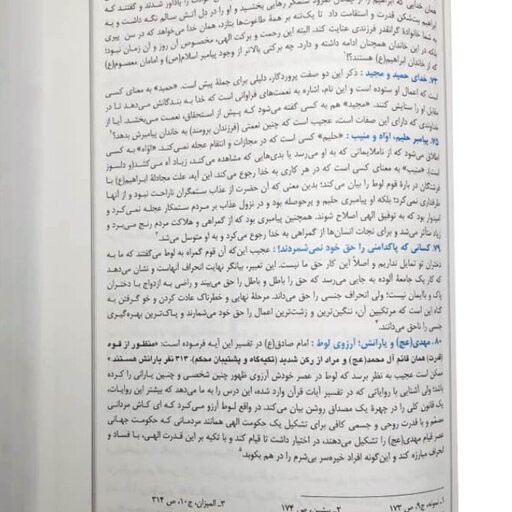 همان خدایی که ابراهیم را از چنگال نمرود ستمگر رهایی بخشید و او را در دل آتش سالم نگه داشت و به
ابراهیم بت‌شکن قدرت و استقامت داد تا یک‌تنه بر همهٔ طاغوت‌ها بتازد، همان خدا می‌خواهد که در سن پیری
به شما خانوادهٔ گرانقدر فرزندی عنایت کند. البته این رحمت و برکت الهی، مخصوص آن روز و آن زمان نبود؛
بلکه در این خاندان همچنان ادامه داشته و دارد. چه برکتی بالاتر از وجود پیامبر اسلام(ص) و امامان معصوم(ع)
در این خاندان؟!
۷۳. خدای حمید و مجید : ذکر این دو صفت پروردگار، دلیلی برای جملهٔ پیش است. «حمید» به معنای کسی
است که اعمال او ستوده است و این نام، اشاره به نعمت‌های فراوانی است که خدا به بندگانش می‌دهد تا در
مقابل او را ستایش کنند. «مجید» هم به کسی گفته می‌شود که پیش از استحقاق، نعمت می‌بخشد. آیا از
خداوندی که دارای این صفات است، عجیب است که چنین نعمتی (فرزندان برومند) به خاندان پیامبرش بدهد؟
۷۵. پیامبر حلیم، اوّاه و منیب : «حلیم» کسی است که در مجازات و انتقام عجله نمی‌کند. «اوّاه» به کسی
اطلاق می‌شود که از ناملایماتی که به او می‌رسد یا بدی‌هایی که مشاهده می‌کند، زیاد آه می‌کشد(و دلسوز
است). «منیب» به معنای کسی است که در هر کاری به خدا رجوع می‌کند. این آیه، علت مجادلهٔ ابراهیم(ع) با
فرشتگان در بارهٔ قوم لوط را بیان می‌کند؛ بدین معنی که آن حضرت از عذاب ستمگران ناراحت نبود و از آنها
طرفداری نمی‌کرد؛ بلکه او پیامبری حلیم و پرحوصله بود و در نزول عذاب بر مردم ستمکار عجله نمی‌کرد و
امیدوار بود که به توفیق الهی اصلاح شوند. همچنین پیامبری بود که از گمراهی و هلاکت مردم رنج می‌برد و
زیاد متأثر می‌شد و برای نجات انسان‌ها از گمراهی به خدا رجوع می‌کرد و به او متوسل می‌شد.۳
۷۹. کسانی که پاکدامنی را حق خود نمی‌شمردند! : عجیب این‌که آن قوم گمراه به لوط می‌گفتند که ما به
دختران تو تمایل نداریم و اصلاً این کار حق ما نیست. این تعبیر، بیانگر نهایت انحراف آنهاست و نشان می‌دهد
که کار یک جامعهٔ آلوده به جایی می‌رسد که حق را باطل و باطل را حق می‌بیند و راضی به ازدواج با دختران
پاک و باایمان نیست؛ ولی انحراف جنسی را حق می‌داند. مرحلهٔ نهایی و خطرناک عادت کردن و خو گرفتن به
گناه این است که مرتکبین آن، ننگین‌ترین و زشت‌ترین اعمال را حق خود می‌شمارند و پاک‌ترین بهره‌گیری
جنسی را ناحق می‌دانند.۴
۸۰. مهدی(عج) و یارانش؛ آرزوی لوط : امام صادق(ع) در تفسیر این آیه فرموده است: «منظور از قوه
(قدرت) همان قائم آل محمد(عج) و مراد از رکن شدید (تکیه‌گاه و پشتیبان محکم)، ۳۱۳ نفر یارانش هستند.»
ممکن است عجیب به نظر برسد که لوط در عصر خودش آرزوی ظهور چنین شخصی و چنین یارانی را کرده
باشد؛ ولی آشنایی با روایاتی که در تفسیر آیات قرآن وارد شده، این درس را به ما می‌دهد که بیشتر این روایات،
یک قانون کلی را در چهرهٔ یک مصداق روشن بیان می‌کند. در واقع لوط آرزو می‌کرد که ای کاش مردانی
مصمّم و با قدرت روحی و جسمی کافی برای تشکیل یک حکومت الهی همانند مردمانی که حکومت جهانی
عصر قیام مهدی(عج) را تشکیل می‌دهند، در اختیار داشت تا قیام کند و با تکیه بر این قدرت الهی، با فساد و
انحراف مبارزه کند و این‌گونه افراد خیره‌سر بی‌شرم را در هم بکوبد.۵
۱ـ نمونه، ج۹، ص ۱۷۳ ۲ـ پیشین، ص ۱۷۴ ۳ـ المیزان، ج۱۰، ص ۳۱۴